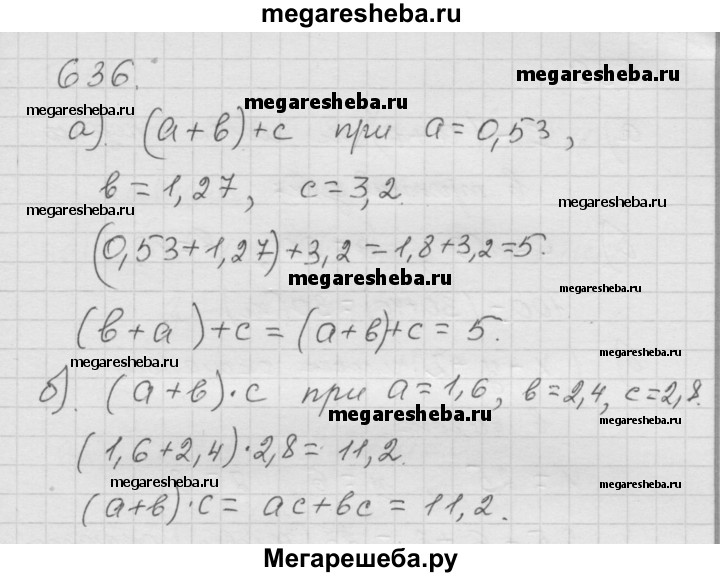 megaresheba.ru
636.
megaresheba.ru
megaresheba.ru
megaresheba.ru
а). (а+в)+с при а=0,53,
в=1,27, с=3,2.
megaresheba.ru
megaresheba.ru
(0,53+1,27)+3,2=1,8+3,2=5.
megaresheba.ru
(в+а)+с=(а+в)+с=5.
megaresheba.ru
megaresheba.ru
б). (а+в)·с при а=1,6, в=2,4, с=2,8.
megaresheba.ru
(1,6+2,4)·2,8=11,2.
megaresheba.ru
megaresheba.ru
(а+в)·с= ас+вс=11,2.
Мегарешеба.ру